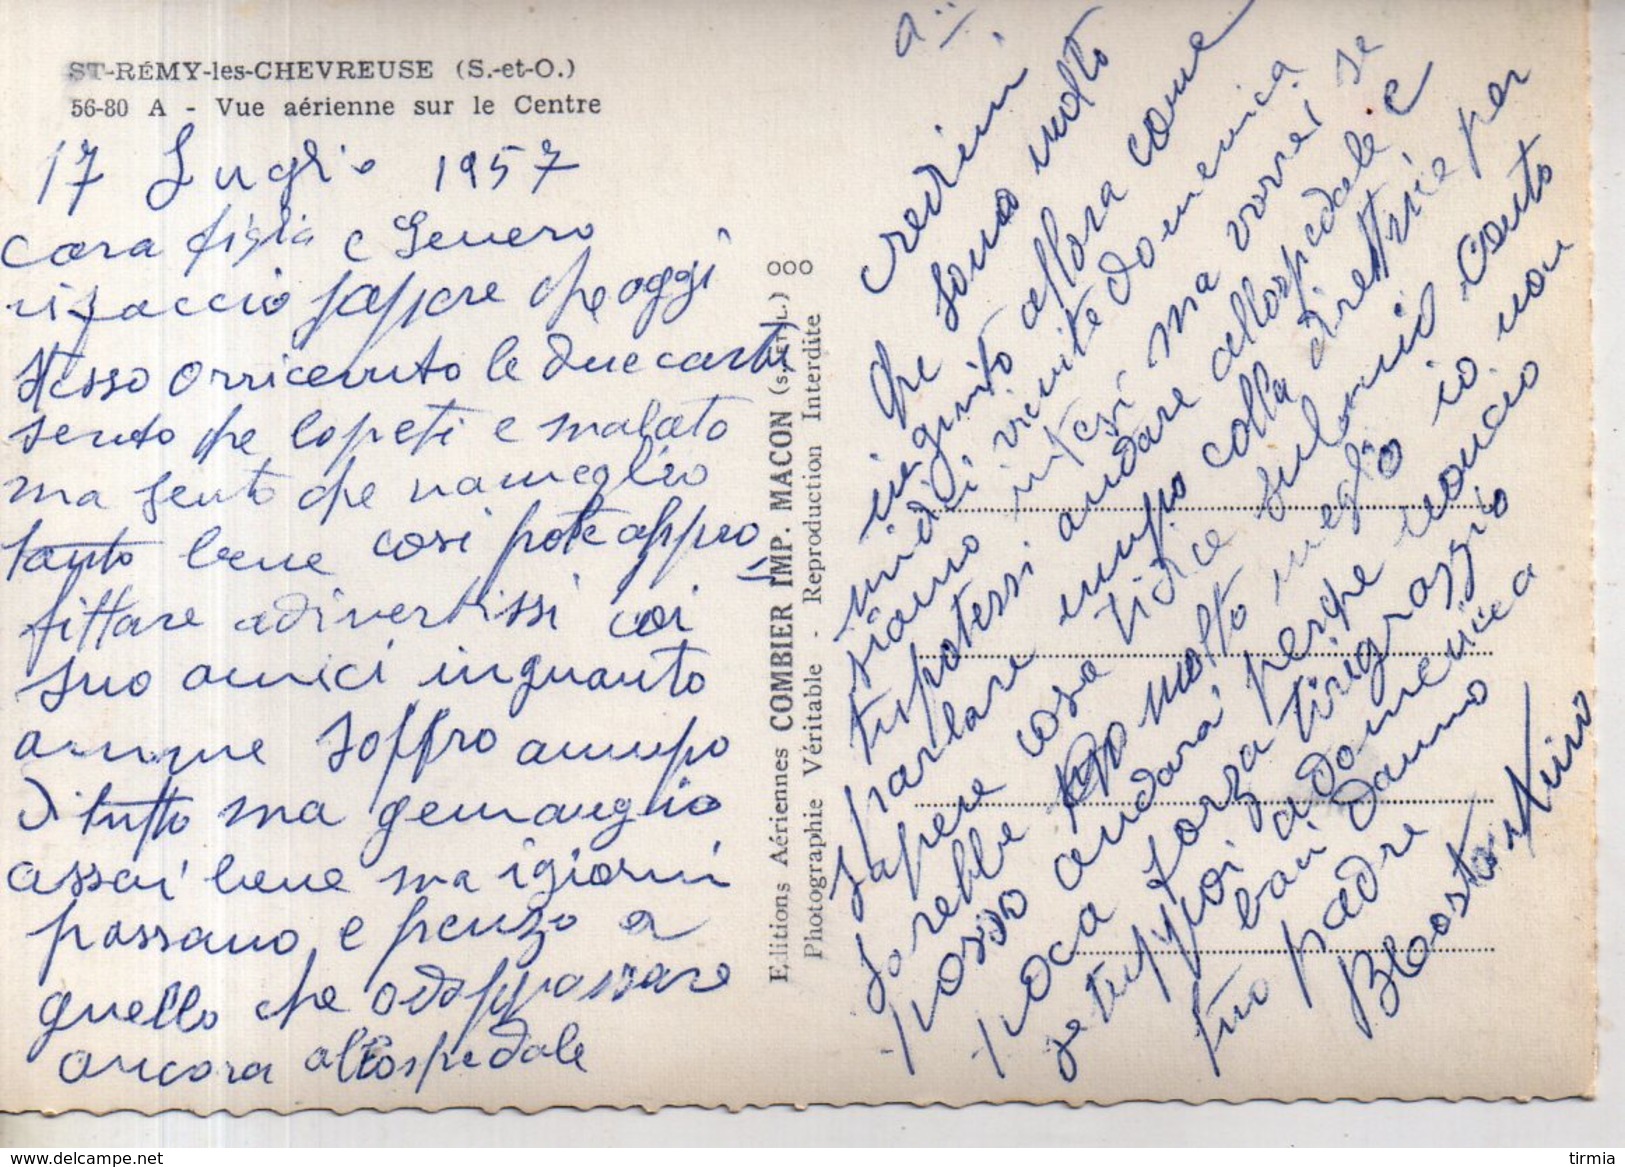 ST-RÉMY-les-CHEVREUSE (S.-et-O.)
56-80 A - Vue aérienne sur le Centre
17 Luglio 1957
Cara figlia e Genero
vi faccio sappere che oggi
stesso o rricevuto le due carte
sento che lopeti e malato
ma sento che va meglio
tanto bene cosi pote appro
fittare a divertissi coi
suo amici in quanto
a me soffro a mupo
di tutto ma ge mauglio
assai bene ma i giorni
passano e penzo a
quello che o dappassare
ancora allospedale
Editions Aériennes COMBIER IMP. MACON (S.-ET-L.) 000
Photographie Véritable - Reproduction Interdite
credimi
che sono molto
in quito allora come
mi dici vinite domenica
siamo intesi ma vorrei se
tu potessi andare allospedale e
parlare mupo colla direttrice per
sapere cosa ti dice sul mio conto
sarebbe molto meglio io non
posso andara perche non cio
poca forza ti rigrazzio
se tu ppoi a domenica
bai danno
tuo padre